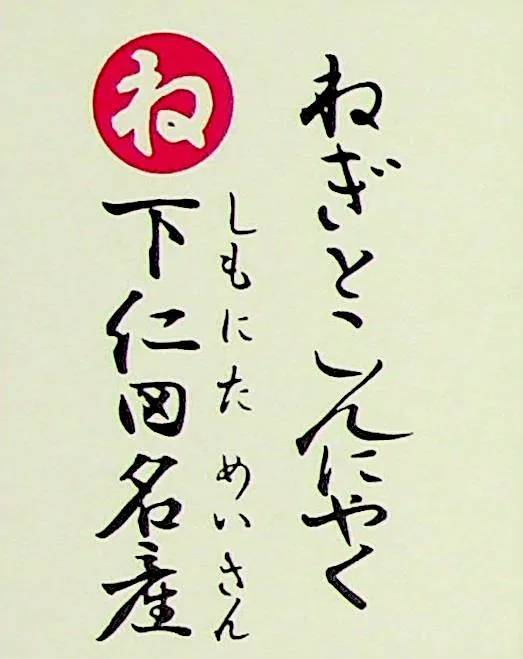 ねぎとこんにやく
ね
下仁田名産
しもにた めいさん